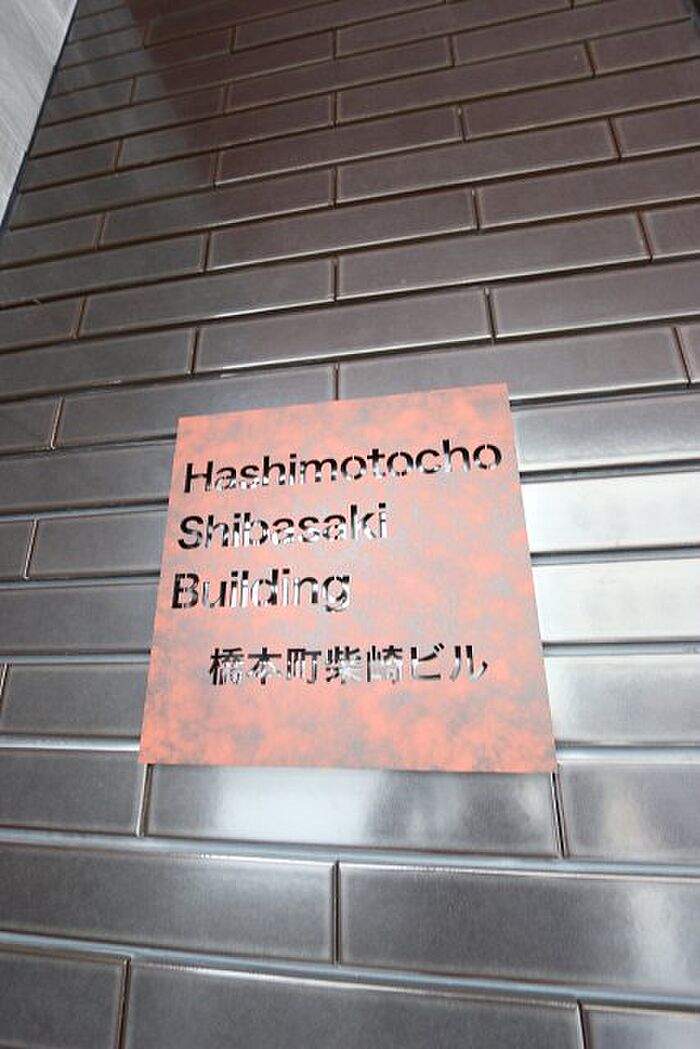 Hashimotocho
Shibasaki
Building
橋本町柴崎ビル